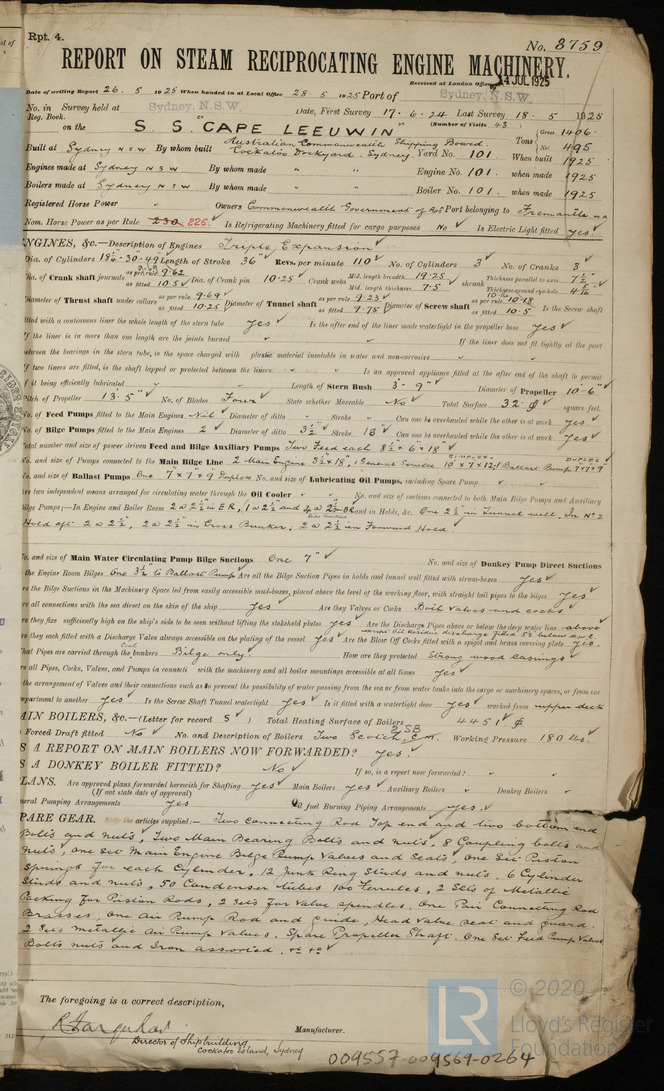 Rpt. 4.
No. 8759
REPORT ON STEAM RECIPROCATING ENGINE MACHINERY.
Received at London Office 14 JUL 1925
Date of writing Report 26. 5 1925 When handed in at Local Office 28. 5 1925 Port of Sydney, N.S.W.
No. in Survey held at Sydney, N.S.W. Date, First Survey 17. 6. 24 Last Survey 18. 5 1925
Reg. Book.
on the S. S. "CAPE LEEUWIN" (Number of Visits 43)
Tons Gross 1406 Net 495
Built at Sydney N S W By whom built Australian Commonwealth Shipping Board. Cockatoo Dockyard. Sydney. Yard No. 101 When built 1925
Engines made at Sydney N S W By whom made " " Engine No. 101 when made 1925
Boilers made at Sydney N S W By whom made " " Boiler No. 101 when made 1925
Registered Horse Power " Owners Commonwealth Government of Port belonging to Fremantle W A
Nom. Horse Power as per Rule 230 226. Is Refrigerating Machinery fitted for cargo purposes No Is Electric Light fitted yes
ENGINES, &c.—Description of Engines Triple Expansion
Dia. of Cylinders 18½-30-49 Length of Stroke 36" Revs. per minute 110 No. of Cylinders 3 No. of Cranks 3
Dia. of Crank shaft journals as per rule 9.62 as fitted 10.5 Dia. of Crank pin 10.25 Crank webs Mid. length breadth 19.25 Mid. length thickness 7.5 shrunk Thickness parallel to axis 7½ Thickness around eyehole
Diameter of Thrust shaft under collars as per rule 9.69 as fitted 10.25 Diameter of Tunnel shaft as per rule 9.23 as fitted 9.75 Diameter of Screw shaft as per rule 10.18 as fitted 10.5 Is the Screw shaft
fitted with a continuous liner the whole length of the stern tube yes Is the after end of the liner made watertight in the propeller boss yes
If the liner is in more than one length are the joints burned " If the liner does not fit tightly at the part
between the bearings in the stern tube, is the space charged with plastic material insoluble in water and non-corrosive "
If two liners are fitted, is the shaft lapped or protected between the liners " Is an approved appliance fitted at the after end of the shaft to permit
of it being efficiently lubricated " Length of Stern Bush 3'-9" Diameter of Propeller 10'-6"
Pitch of Propeller 13'-5" No. of Blades Four State whether Moveable No Total Surface 32 square feet.
No. of Feed Pumps fitted to the Main Engines Nil Diameter of ditto " Stroke " Can one be overhauled while the other is at work yes
No. of Bilge Pumps fitted to the Main Engines 2 Diameter of ditto 3½ Stroke 18 Can one be overhauled while the other is at work yes
Total number and size of power driven Feed and Bilge Auxiliary Pumps Two Feed each 8½ × 6 × 18"
No. and size of Pumps connected to the Main Bilge Line 2 Main Engine 3½ × 18, 1 General Service 10 × 7 × 12, 1 Ballast Pump 7×7×9
No. and size of Ballast Pumps One 7" × 7" × 9 Duplex No. and size of Lubricating Oil Pumps, including Spare Pump "
Are two independent means arranged for circulating water through the Oil Cooler " No. and size of suctions connected to both Main Bilge Pumps and Auxiliary
Bilge Pumps;—In Engine and Boiler Room 2 @ 2½ in E R, 1 @ 2½ and in Holds, &c. One 2½ in Tunnel well. In No 2
Hold aft 2 @ 2½, 2 @ 2½ in Cross Bunker, 2 @ 2½ in Forward Hold
No. and size of Main Water Circulating Pump Bilge Suctions One 7" No. and size of Donkey Pump Direct Suctions
to the Engine Room Bilges One 3½ to Ballast Pump Are all the Bilge Suction Pipes in holds and tunnel well fitted with strum-boxes yes
Are the Bilge Suctions in the Machinery Space led from easily accessible mud-boxes, placed above the level of the working floor, with straight tail pipes to the bilges yes
Are all connections with the sea direct on the skin of the ship yes Are they Valves or Cocks Both valves and cocks
Are they fixed sufficiently high on the ship's side to be seen without lifting the stokehold plates yes Are the Discharge Pipes above or below the deep water line above
Are they each fitted with a Discharge Valve always accessible on the plating of the vessel yes Are the Blow Off Cocks fitted with a spigot and brass covering plate yes.
What Pipes are carried through the bunkers Bilge only How are they protected Strong wood casings
Are all Pipes, Cocks, Valves, and Pumps in connection with the machinery and all boiler mountings accessible at all times yes
Is the arrangement of Valves and their connections such as to prevent the possibility of water passing from the sea or from water tanks into the cargo or machinery spaces, or from one
compartment to another yes Is the Screw Shaft Tunnel watertight yes Is it fitted with a watertight door yes worked from upper deck
MAIN BOILERS, &c.—(Letter for record S) Total Heating Surface of Boilers 4451
Is Forced Draft fitted No No. and Description of Boilers Two Scotch 2 SB Working Pressure 180 lbs.
IS A REPORT ON MAIN BOILERS NOW FORWARDED? yes.
IS A DONKEY BOILER FITTED? No If so, is a report now forwarded? "
PLANS. Are approved plans forwarded herewith for Shafting yes Main Boilers yes Auxiliary Boilers " Donkey Boilers "
(If not state date of approval)
General Pumping Arrangements yes Oil fuel Burning Piping Arrangements yes.
SPARE GEAR. State the articles supplied:— Two Connecting Rod Top end and two bottom end
Bolts and nuts, Two Main Bearing Bolts and nuts, 8 Coupling bolts and
nuts, One Set Main Engine Bilge Pump Valves and Seats, One Set Piston
Springs for each Cylinder, 12 Junk Ring Studs and nuts. 6 Cylinder
Studs and nuts, 50 Condenser tubes 100 Ferrules, 2 Sets of Metallic
Packing for Piston Rods, 2 Sets for Valve Spindles. One Pair Connecting Rod
Brasses, One Air Pump Rod and guide, Head Valve Seat and Guard.
2 Sets metallic Air Pump Valves. Spare Propeller Shaft. One Set Feed Pump Valves
Bolts nuts and Iron assorted.
The foregoing is a correct description,
R Farquhar Manufacturer.
Director of Shipbuilding
Cockatoo Island, Sydney
009557-009569-0264
LR
© 2020
Lloyd's Register
Foundation